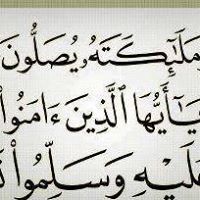 مَلَٰٓئِكَتَهُۥ يُصَلُّونَ
يَٰٓأَيُّهَا ٱلَّذِينَ ءَامَنُوا۟
عَلَيْهِ وَسَلِّمُوا۟